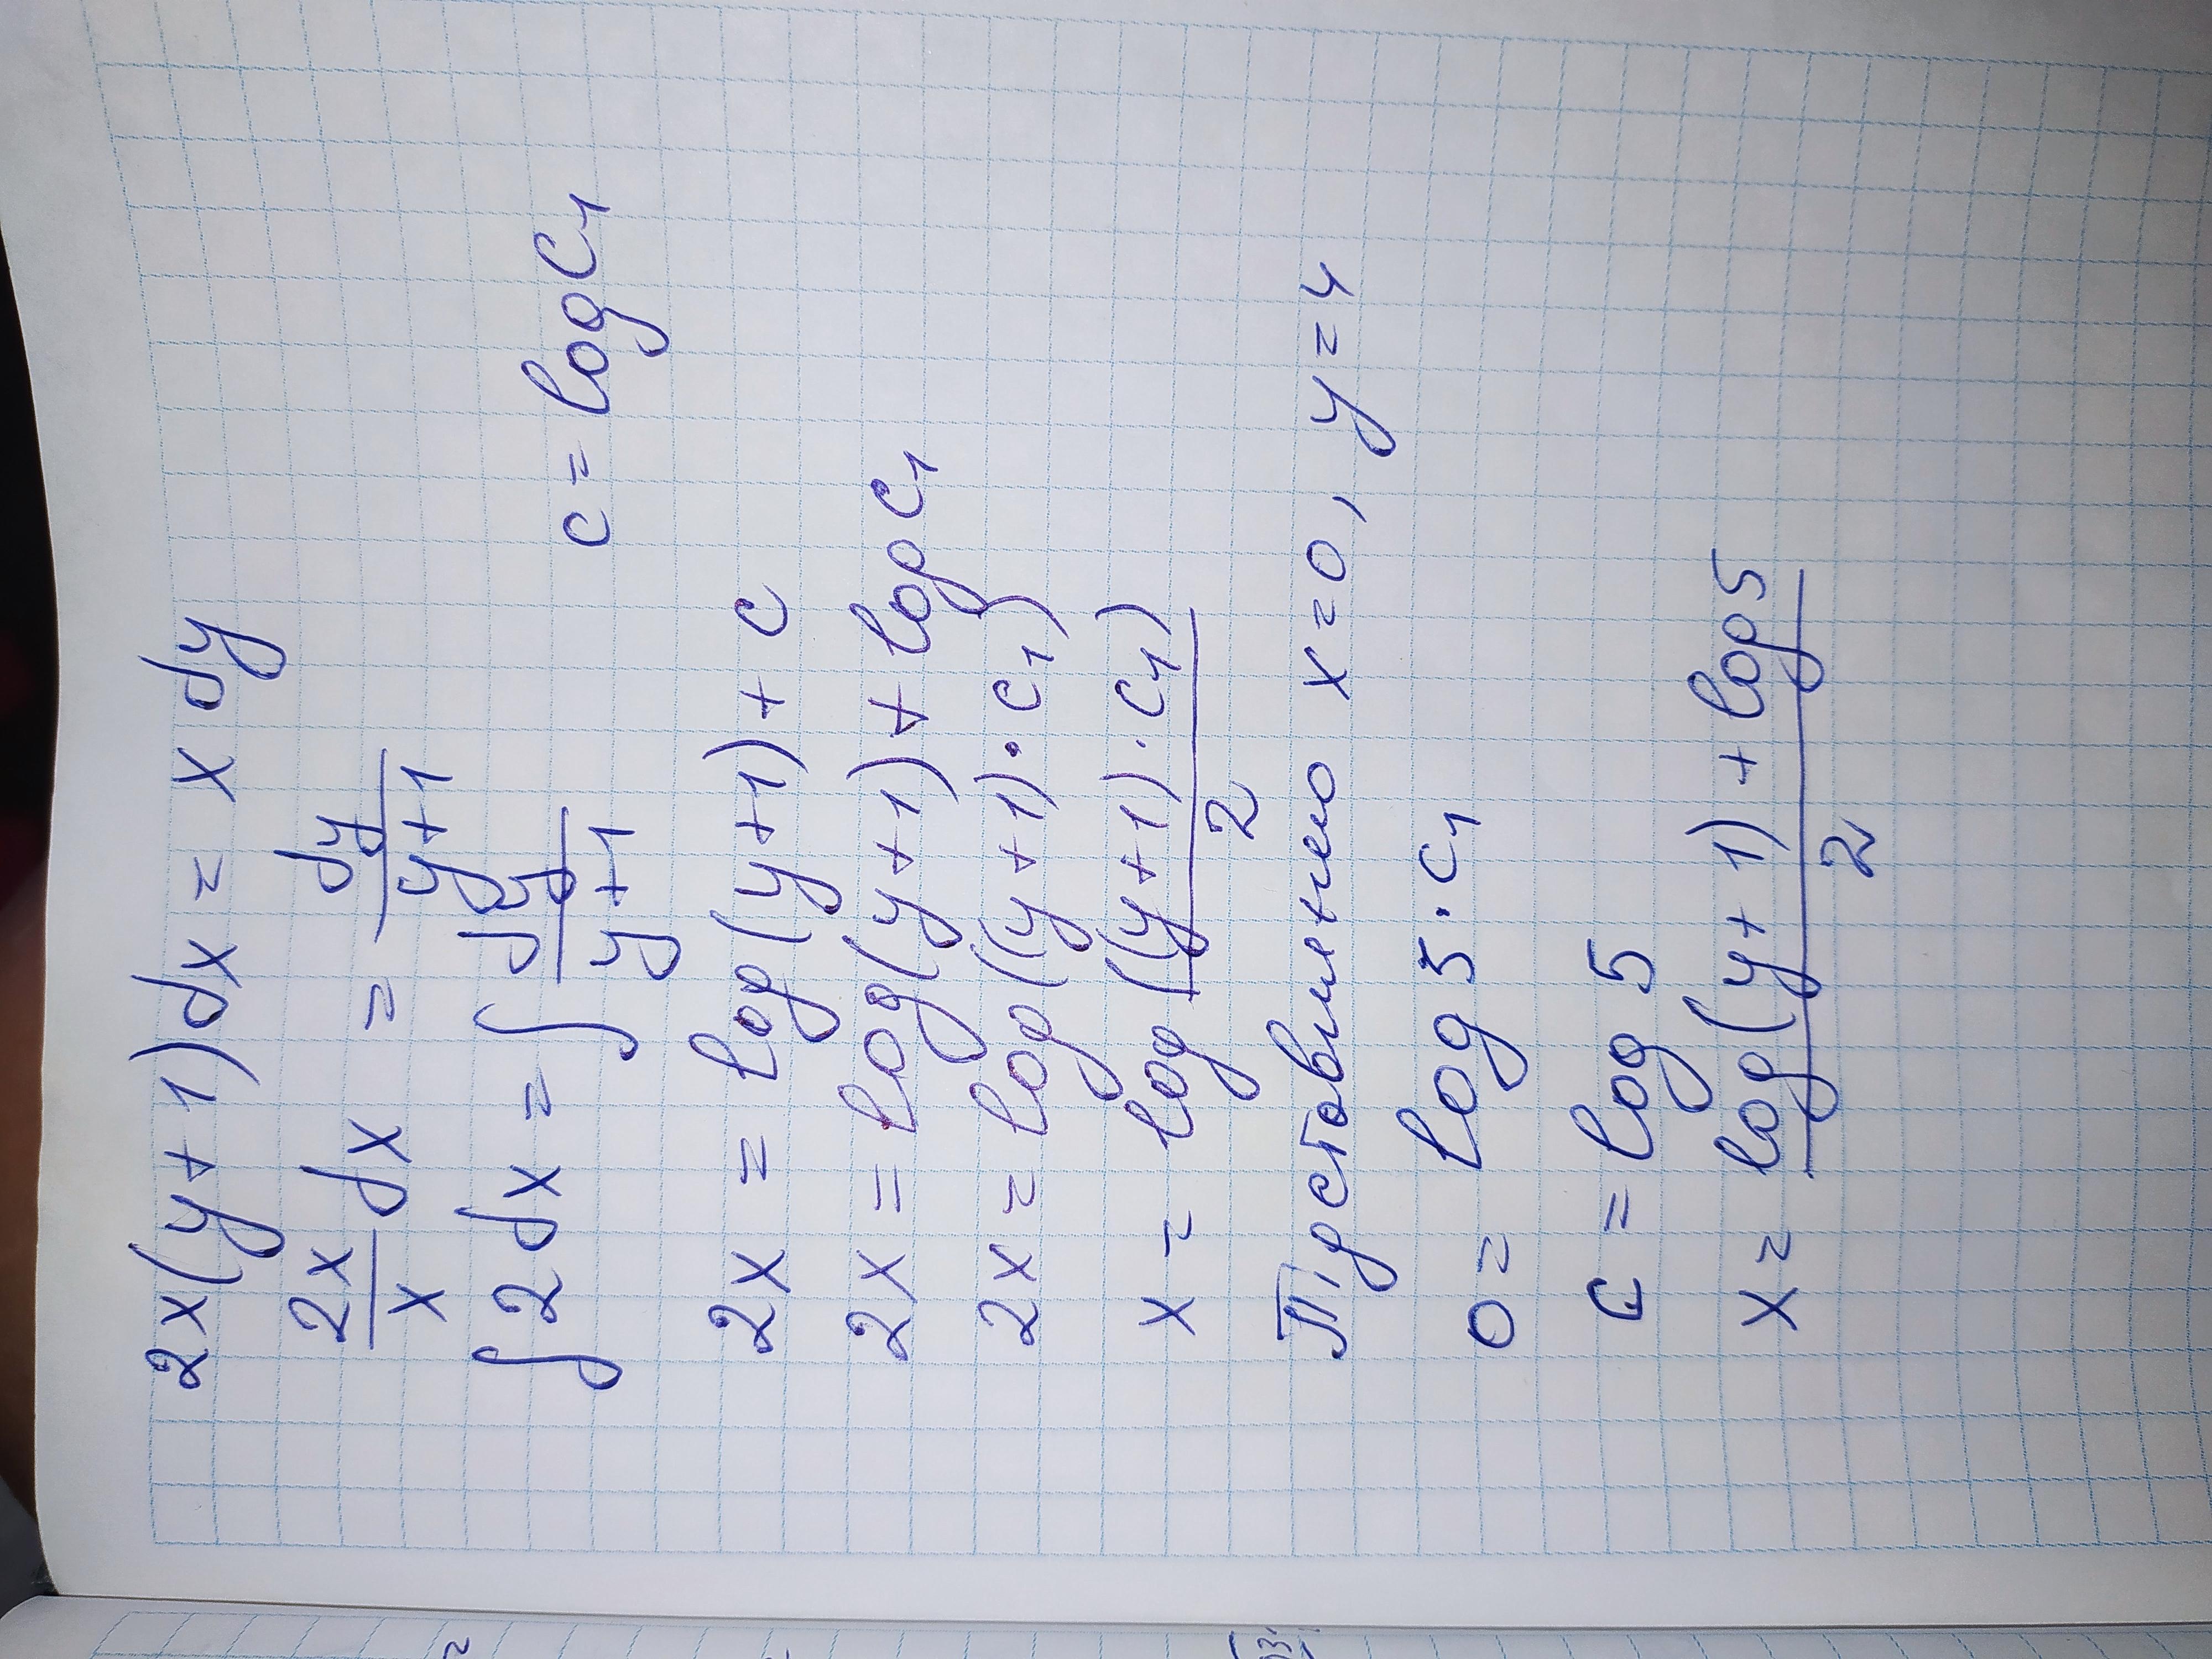 2x(y+1)dx = x dy
2x/x dx = dy/y+1
∫2dx = ∫dy/y+1 c = log c₁
2x = log(y+1) + c
2x = log(y+1) + log c₁
2x = log((y+1)·c₁)
x = log ((y+1)·c₁)/2
Підставимо x=0, y=4
0 = log 5·c₁
c = log 5
x = log(y+1) + log 5/2